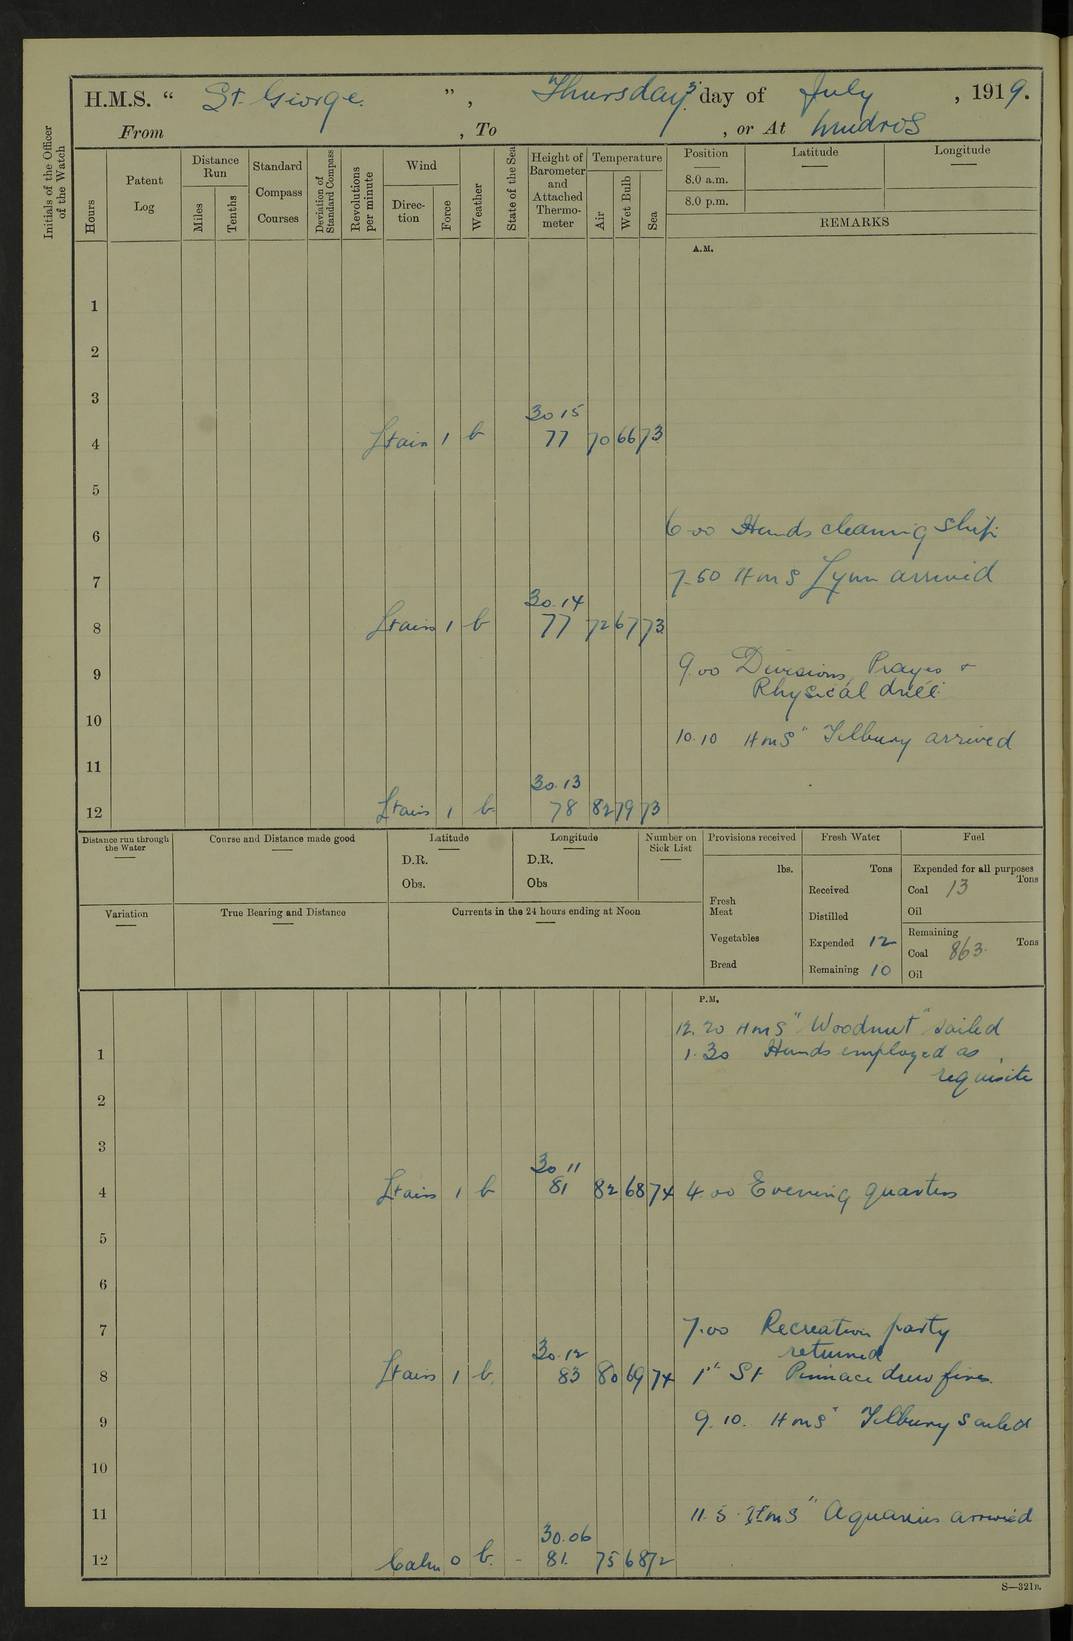 H.M.S. “ St. George ” , Thursday 3 day of July , 1919.
From , To , or At Mudros
Initials of the Officer of the Watch
Hours
Patent Log
Distance Run
Miles
Tenths
Standard Compass Courses
Deviation of Standard Compass
Revolutions per minute
Wind
Direction
Force
Weather
State of the Sea
Height of Barometer and Attached Thermometer
Temperature
Air
Wet Bulb
Sea
Position Latitude Longitude
8.0 a.m.
8.0 p.m.
REMARKS
A.M.
1
2
3
30 15
4 Ltairs 1 b 77 70 66 73
5
6.00 Hands cleaning ship
6
7.50 HMS Lynn arrived
7
30.14
8 Ltairs 1 b 77 72 67 73
9.00 Divisions, Prayers +
9
Physical drill
10
10.10 HMS " Tilbury arrived
11
30.13
12 Ltairs 1 b 78 82 79 73
Distance run through the Water
Course and Distance made good
Latitude
D.R.
Obs.
Longitude
D.R.
Obs
Number on Sick List
Provisions received
lbs.
Fresh Meat
Vegetables
Bread
Fresh Water
Tons
Received
Distilled
Expended 12
Remaining 10
Fuel
Expended for all purposes
Coal 13 Tons
Oil
Remaining
Coal 863 Tons
Oil
Variation
True Bearing and Distance
Currents in the 24 hours ending at Noon
P.M.
12.20 HMS "Woodnut" sailed
1 1.30 Hands employed as
requisite
2
3
30 11
4 Ltairs 1 b 81 82 68 74 4.00 Evening quarters
5
6
7 7.00 Recreation party
returned
30.12
8 Ltairs 1 b. 83 80 69 74 1st St Pinnace drew fires.
9 9.10. HMS " Tilbury Sailed
10
11 11.5 HMS " Aquarius arrived
30.06
12 Calm 0 b. - 81. 75 68 72
S—321B.